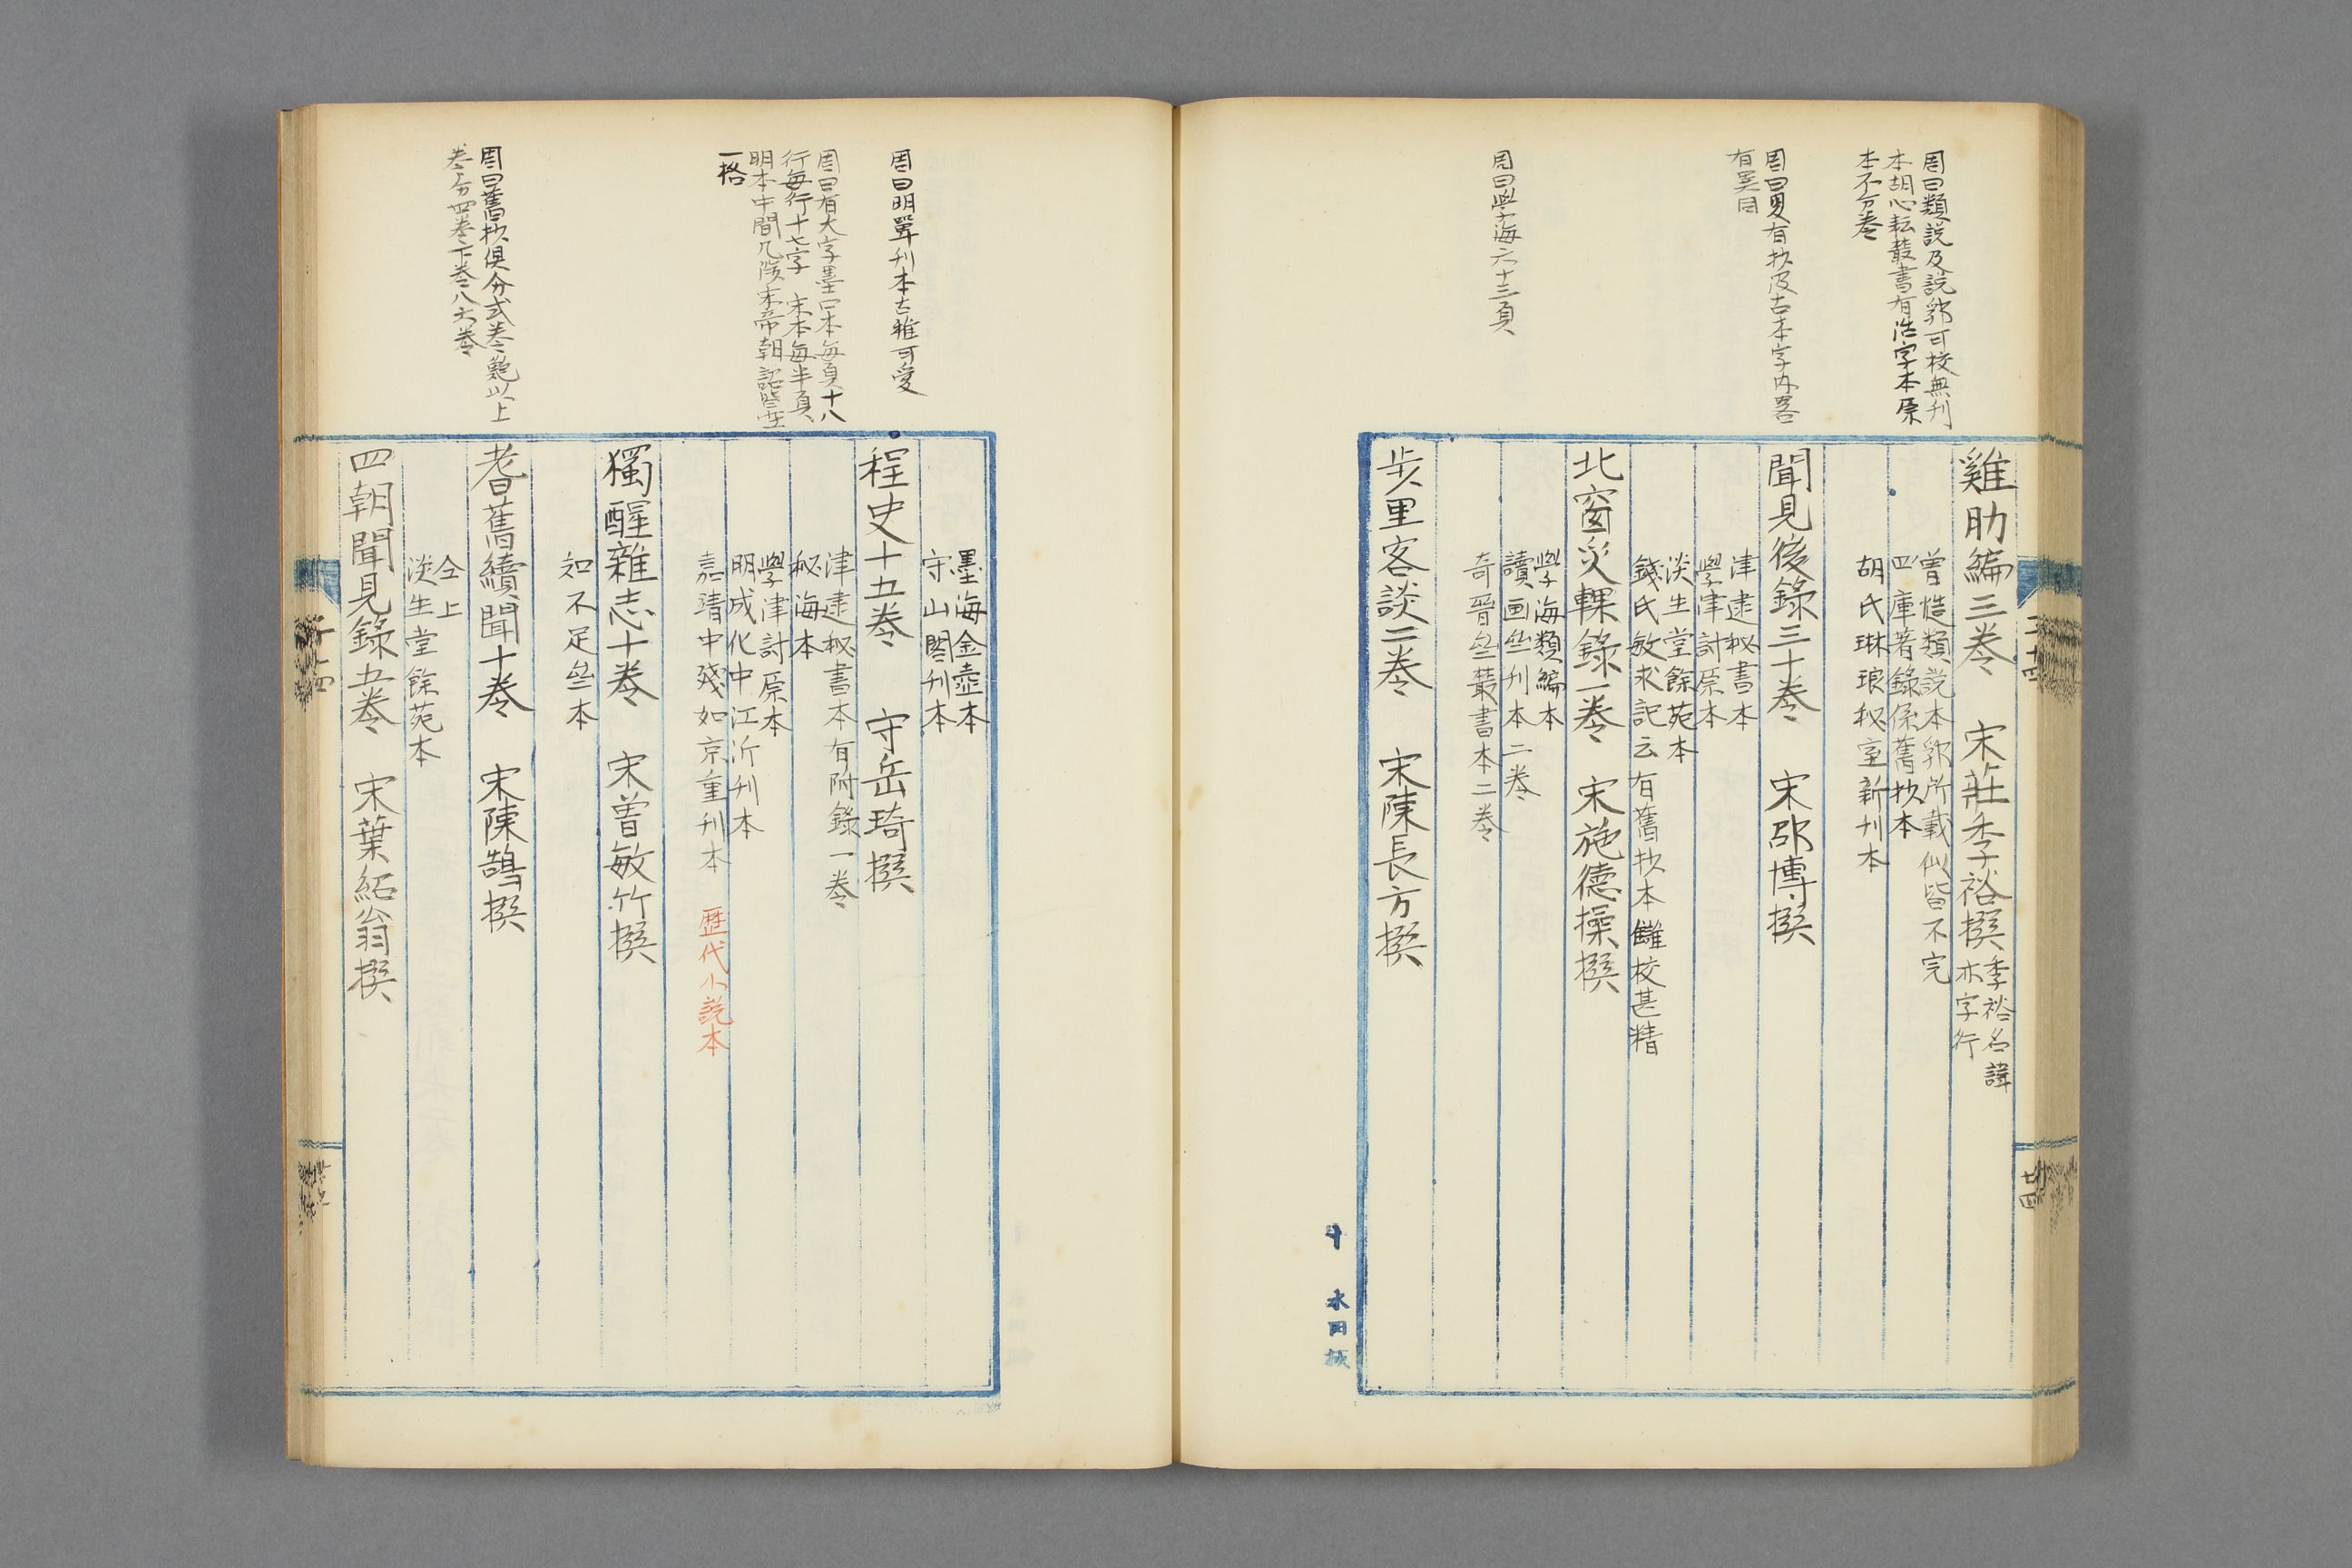 周曰類説及説郛可校無刊
本胡心耘叢書有活字本原
本不分卷
周曰夏有抄及古本字内畧
有異同
周曰學海六十三頁
雞肋編三卷　宋莊季裕撰
季裕名諱
亦字行
曾慥類説本郛所載似皆不完
四庫著錄係舊抄本
胡氏琳琅秘室新刊本
聞見後錄三十卷　宋邵博撰
津逮秘書本
學津討原本
淡生堂餘苑本
錢氏敏求記云有舊抄本讎校甚精
北窗炙輠錄一卷　宋施德操撰
學海類編本
讀画斋刊本二卷
奇晉斋叢書本二卷
步里客談二卷　宋陳長方撰
二十四
廿四
周曰明單刊本古雅可愛
周曰有大字墨口本每頁十八
行每行十七字　宋本每半頁
明本中間凡涉宋帝朝詔皆空
一格
周曰舊抄俱分式卷艶以上
卷分四卷下卷八六卷
墨海金壺本
守山閣刊本
程史十五卷　守岳琦撰
津逮秘書本有附錄一卷
秘海本
學津討原本
明成化中江沂刊本
嘉靖中殘如京重刊本　歷代小説本
獨醒雜志十卷　宋曾敏竹撰
知不足斋本
耆舊續聞十卷　宋陳鵠撰
仝上
淡生堂餘苑本
四朝聞見錄五卷　宋葉紹翁撰